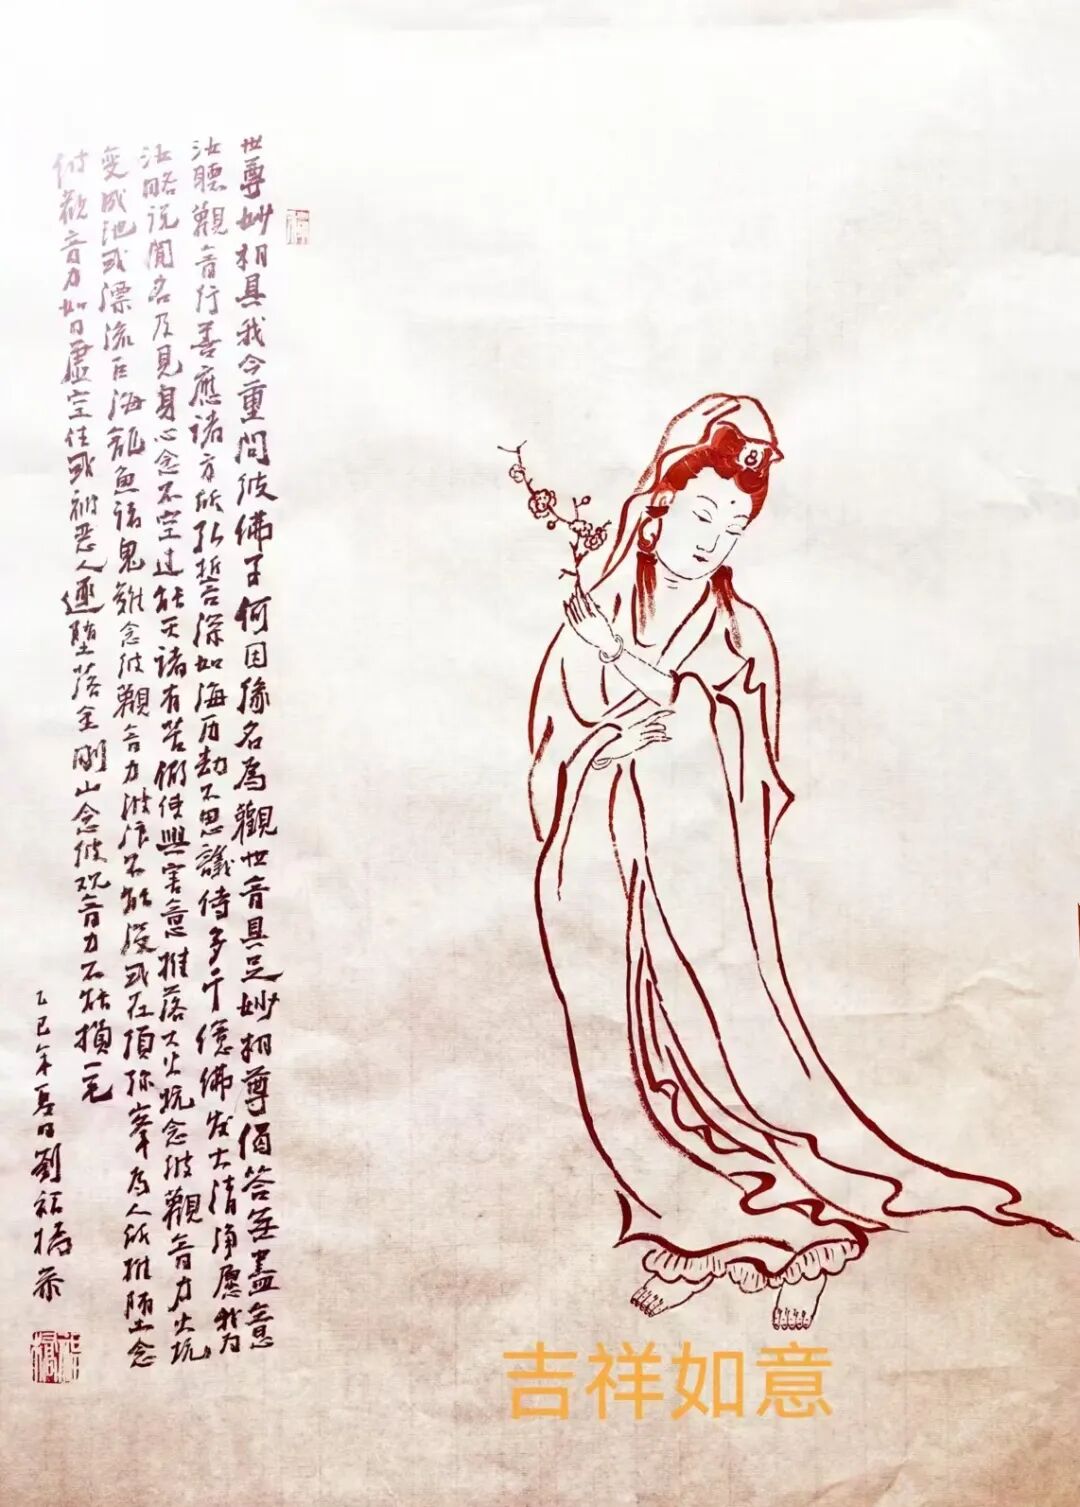 世尊妙相具我今重問彼佛子何因緣名為觀世音具足妙相尊偈答無盡意
汝聽觀音行善應諸方所弘誓深如海历劫不思議侍多千億佛发大清淨愿我为
汝略说聞名及見身心念不空过能灭諸有苦假使興害意推落大火坑念彼觀音力火坑
变成池或漂流巨海龍魚诸鬼難念彼觀音力波浪不能没或在須弥峯为人所推堕念
彼观音力如日虚空住或被恶人逐堕落金刚山念彼观音力不能損一毛
乙巳年夏日劉
吉祥如意